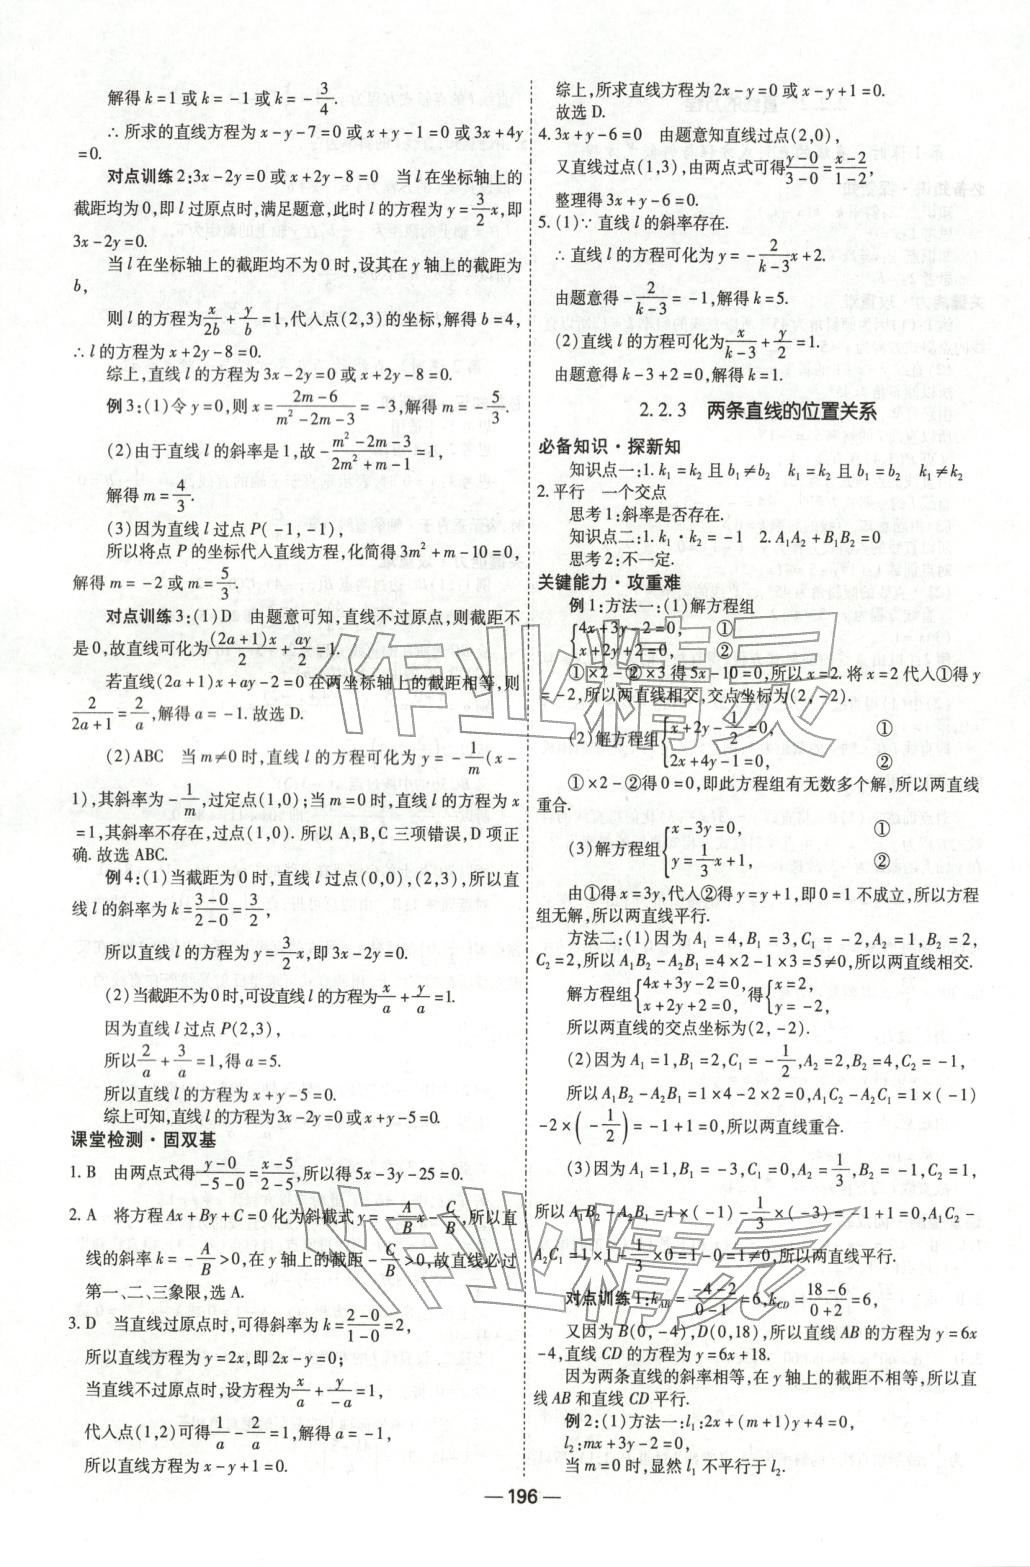 解得 k=1 或 k=-1 或 k=-3/4.
∴ 所求的直线方程为 x-y-7=0 或 x+y-1=0 或 3x+4y
=0.
对点训练 2:3x-2y=0 或 x+2y-8=0 当 l 在坐标轴上的
截距均为 0 时,即 l 过原点时,满足题意,此时 l 的方程为 y=3/2x,即
3x-2y=0.
当 l 在坐标轴上的截距均不为 0 时,设其在 y 轴上的截距为
b,
则 l 的方程为 x/2b+y/b=1,代入点(2,3)的坐标,解得 b=4,
∴ l 的方程为 x+2y-8=0.
综上,直线 l 的方程为 3x-2y=0 或 x+2y-8=0.
例 3:(1)令 y=0,则 x=(2m-6)/(m²-2m-3)=-3,解得 m=-5/3.
(2)由于直线 l 的斜率是 1,故-(m²-2m-3)/(2m²+m-1)=1,
解得 m=4/3.
(3)因为直线 l 过点 P(-1,-1),
所以将点 P 的坐标代入直线方程,化简得 3m²+m-10=0,
解得 m=-2 或 m=5/3.
对点训练 3:(1)D 由题意可知,直线不过原点,则截距不
是 0,故直线可化为(2a+1)x/2+ay/2=1.
若直线(2a+1)x+ay-2=0 在两坐标轴上的截距相等,则
2/(2a+1)=2/a,解得 a=-1.故选 D.
(2)ABC 当 m≠0 时,直线 l 的方程可化为 y=-1/m(x-
1),其斜率为-1/m,过定点(1,0);当 m=0 时,直线 l 的方程为 x
=1,其斜率不存在,过点(1,0).所以 A,B,C 三项错误,D 项正
确.故选 ABC.
例 4:(1)当截距为 0 时,直线 l 过点(0,0),(2,3),所以直
线 l 的斜率为 k=(3-0)/(2-0)=3/2,
所以直线 l 的方程为 y=3/2x,即 3x-2y=0.
(2)当截距不为 0 时,可设直线 l 的方程为x/a+y/a=1.
因为直线 l 过点 P(2,3),
所以2/a+3/a=1,得 a=5.
所以直线 l 的方程为 x+y-5=0.
综上可知,直线 l 的方程为 3x-2y=0 或 x+y-5=0.
课堂检测·固双基
1. B 由两点式得(y-0)/(-5-0)=(x-5)/(2-5),所以得 5x-3y-25=0.
2. A 将方程 Ax+By+C=0 化为斜截式 y=-A/Bx-C/B,所以直
线的斜率 k=-A/B>0,在 y 轴上的截距-C/B>0,故直线必过
第一、二、三象限,选 A.
3. D 当直线过原点时,可得斜率为 k=(2-0)/(1-0)=2,
所以直线方程为 y=2x,即 2x-y=0;
当直线不过原点时,设方程为x/a+y/-a=1,
代入点(1,2)可得1/a-2/a=1,解得 a=-1,
所以直线方程为 x-y+1=0.
综上,所求直线方程为 2x-y=0 或 x-y+1=0.
故选 D.
4. 3x+y-6=0 由题意知直线过点(2,0),
又直线过点(1,3),由两点式可得(y-0)/(3-0)=(x-2)/(1-2),
整理得 3x+y-6=0.
5. (1)∵ 直线 l 的斜率存在.
∴ 直线 l 的方程可化为 y=-2/(k-3)x+2.
由题意得-2/(k-3)=-1,解得 k=5.
(2)直线 l 的方程可化为x/(k-3)+y/2=1.
由题意得 k-3+2=0,解得 k=1.
2.2.3 两条直线的位置关系
必备知识·探新知
知识点一:1. k₁=k₂ 且 b₁≠b₂ k₁=k₂ 且 b₁=b₂ k₁≠k₂
2. 平行 一个交点
思考 1:斜率是否存在.
知识点二:1. k₁·k₂=-1 2. A₁A₂+B₁B₂=0
思考 2:不一定.
关键能力·攻重难
例 1:方法一:(1)解方程组
{4x+3y-2=0, ①
x+2y+2=0, ②
①×2-②×3 得 5x-10=0,所以 x=2.将 x=2 代入①得
y=-2,所以两直线相交,交点坐标为(2,-2).
(2)解方程组{x+2y-1/2=0, ①
2x+4y-1=0, ②
①×2-②得 0=0,即此方程组有无数多个解,所以两直线
重合.
(3)解方程组{x-3y=0, ①
y=1/3x+1, ②
由①得 x=3y,代入②得 y=y+1,即 0=1 不成立,所以方程
组无解,所以两直线平行.
方法二:(1)因为 A₁=4,B₁=3,C₁=-2,A₂=1,B₂=2,
C₂=2,所以 A₁B₂-A₂B₁=4×2-1×3=5≠0,所以两直线相交.
解方程组{4x+3y-2=0, x+2y+2=0,得{x=2, y=-2.
所以两直线的交点坐标为(2,-2).
(2)因为 A₁=1,B₁=2,C₁=-1/2,A₂=2,B₂=4,C₂=-1,
所以 A₁B₂-A₂B₁=1×4-2×2=0,A₁C₂-A₂C₁=1×(-1)
-2×(-1/2)=-1+1=0,所以两直线重合.
(3)因为 A₁=1,B₁=-3,C₁=0,A₂=1/3,B₂=-1,C₂=1,
所以 A₁B₂-A₂B₁=1×(-1)-1/3×(-3)=-1+1=0,A₁C₂-
A₂C₁=1×1-1/3×0=1-0=1≠0,所以两直线平行.
对点训练 1:k_AB=(-4-2)/(0-1)=6,k_CD=(18-6)/(0+2)=6,
又因为 B(0,-4),D(0,18),所以直线 AB 的方程为 y=6x
-4,直线 CD 的方程为 y=6x+18.
因为两条直线的斜率相等,在 y 轴上的截距不相等,所以直
线 AB 和直线 CD 平行.
例 2:(1)方法一:l₁:2x+(m+1)y+4=0,
l₂:mx+3y-2=0,
当 m=0 时,显然 l₁ 不平行于 l₂.
— 196 —
作业精灵
作业精灵